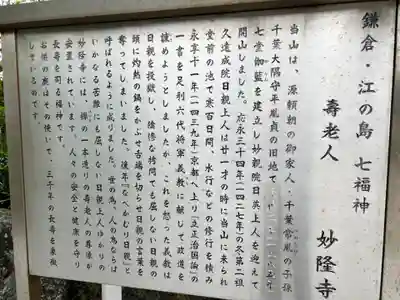 鎌倉・江の島 七福神
寿老人　妙隆寺
当山は、源頼朝の御家人・千葉常胤の子孫
千葉大隅守平胤貞の旧地で
七堂伽藍を建立し妙親院日英上人を迎えて
開山しました。応永三十四年(一四二七年)の冬第二祖
久遠成院日親上人は廿一才の時に当山に来られ
堂前の池で寒百日間、水行などの修行を積み
永享十一年(一四三九年)京都へ上り「立正治国論」の
一書を足利六代将軍義教に献じて政道を
諌めようとしましたが、これを怒った義教は
日親を投獄し、
頭に灼熱の鍋をかぶせ舌端を切らせて言葉を
奪ってしまいました。後年「なべかむり日親」と
呼ばれるように成りました。
いかなる苦難にも屈しない日親上人ゆかりの
妙隆寺には、欅の一本造りの寿老人の尊像が
安置されています。人々の安全と健康を守り
長寿を司る福神です。
お供の鹿はその使いで、三千年の長寿を象徴
しているのです。